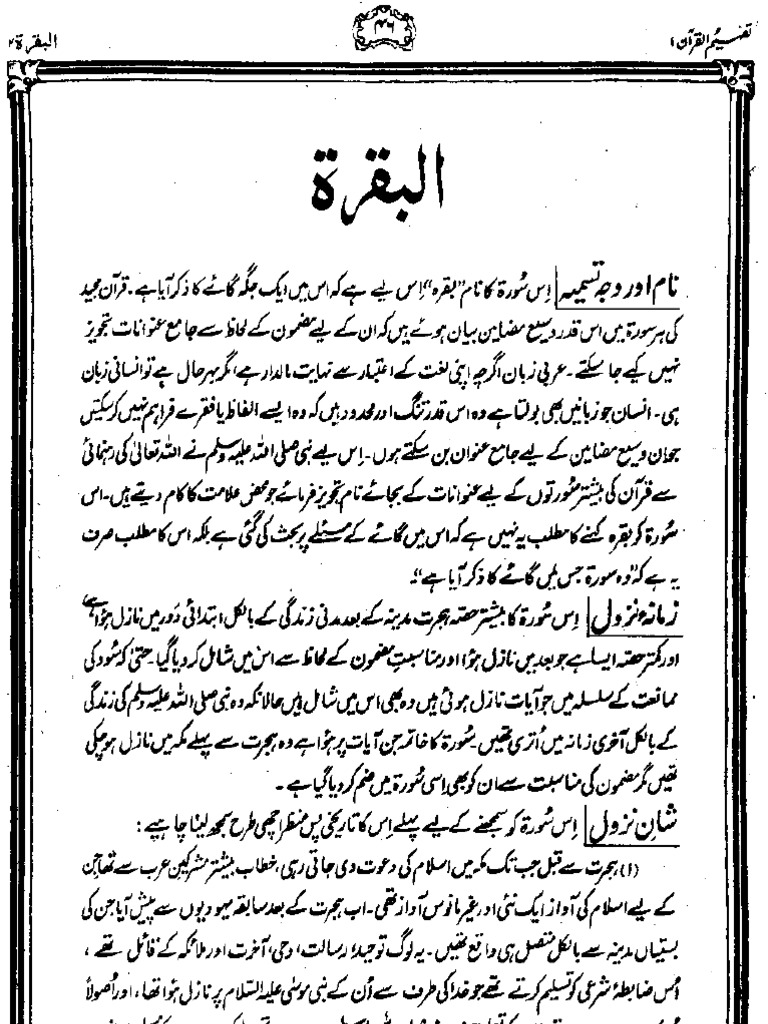 تفہیم القرآن ۱
۴۶
البقرۃ ۲
البقرۃ
نام اور وجہ تسمیہ اِس سُورۃ کا نام ”بقرہ“ اِس لیے ہے کہ اس میں ایک جگہ گائے کا ذکر آیا ہے۔ قرآن مجید
کی ہر سورۃ میں اس قدر وسیع مضامین بیان ہوئے ہیں کہ ان کے لیے مضمون کے لحاظ سے جامع عنوانات تجویز
نہیں کیے جا سکتے۔ عربی زبان اگرچہ اپنی لغت کے اعتبار سے نہایت مالدار ہے، مگر بہرحال ہے تو انسانی زبان
ہی۔ انسان جو زبانیں بھی بولتا ہے وہ اس قدر تنگ اور محدود ہیں کہ وہ ایسے الفاظ یا فقرے فراہم نہیں کر سکتیں
جو ان وسیع مضامین کے لیے جامع عنوان بن سکتے ہوں۔ اِس لیے نبی صلی اللہ علیہ وسلم نے اللہ تعالیٰ کی رہنمائی
سے قرآن کی بیشتر سُورتوں کے لیے عنوانات کے بجائے نام تجویز فرمائے جو محض علامت کا کام دیتے ہیں۔ اس
سُورۃ کو بقرہ کہنے کا مطلب یہ نہیں ہے کہ اس میں گائے کے مسئلے پر بحث کی گئی ہے بلکہ اس کا مطلب صرف
یہ ہے کہ ”وہ سورۃ جس میں گائے کا ذکر آیا ہے“۔
زمانۂ نزول اِس سُورۃ کا بیشتر حصّہ ہجرت مدینہ کے بعد مدنی زندگی کے بالکل ابتدائی دَور میں نازل ہُوا ہے
اور کمتر حصّہ ایسا ہے جو بعد میں نازل ہُوا اور مناسبتِ مضمون کے لحاظ سے اس میں شامل کر دیا گیا۔ حتیٰ کہ سُود کی
ممانعت کے سلسلہ میں جو آیات نازل ہوئی ہیں وہ بھی اس میں شامل ہیں حالانکہ وہ نبی صلی اللہ علیہ وسلم کی زندگی
کے بالکل آخری زمانہ میں اُتری تھیں۔ سُورۃ کا خاتمہ جن آیات پر ہُوا ہے وہ ہجرت سے پہلے مکہ میں نازل ہو چکی
تھیں مگر مضمون کی مناسبت سے ان کو بھی اِسی سُورۃ میں ضم کر دیا گیا ہے۔
شانِ نزول اِس سُورۃ کو سمجھنے کے لیے پہلے اِس کا تاریخی پس منظر اچھی طرح سمجھ لینا چاہیے:
(۱) ہجرت سے قبل جب تک مکہ میں اسلام کی دعوت دی جاتی رہی، خطاب بیشتر مشرکینِ عرب سے تھا جن
کے لیے اسلام کی آواز ایک نئی اور غیر مانوس آواز تھی۔ اب ہجرت کے بعد سابقہ یہودیوں سے پیش آیا جن کی
بستیاں مدینہ سے بالکل متصل ہی واقع تھیں۔ یہ لوگ توحید، رسالت، وحی، آخرت اور ملائکہ کے قائل تھے،
اُس ضابطۂ شرعی کو تسلیم کرتے تھے جو خدا کی طرف سے اُن کے نبی موسٰی علیہ السّلام پر نازل ہُوا تھا، اور اُصولاً